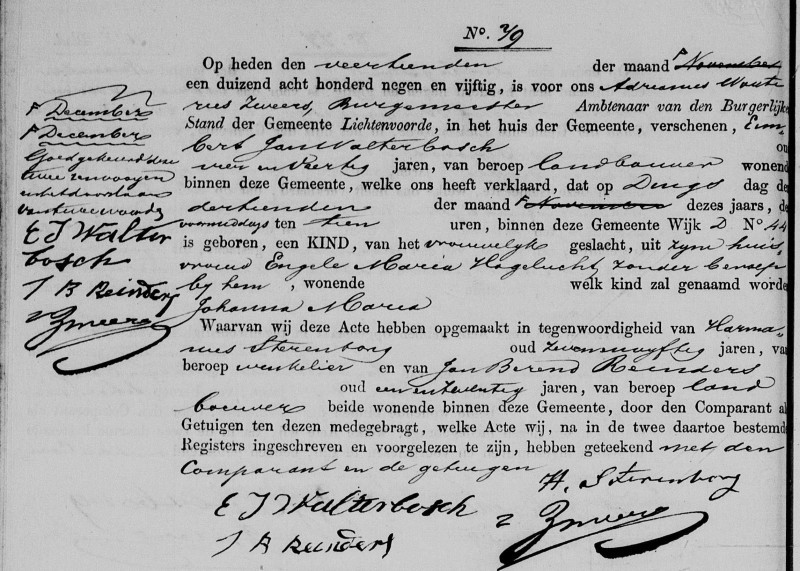 No. 79
Op heden den veertienden der maand November
een duizend acht honderd negen en vijftig, is voor ons Adrianus Woute
rus Zweers, Burgemeester Ambtenaar van den Burgerlijke
Stand der Gemeente Lichtenvoorde, in het huis der Gemeente, verschenen, Eim-
bert Jan Walterbosch ou
vier en Veertig jaren, van beroep landbouwer wonend
binnen deze Gemeente, welke ons heeft verklaard, dat op Dings dag de
dertienden der maand November dezes jaars, de
voormiddags ten tien uren, binnen deze Gemeente Wijk D No 44
is geboren, een KIND, van het vrouwelijk geslacht, uit zijn huis
vrouw Engele Maria Hogelucht, zonder beroep
by hem, wonende welk kind zal genaamd worde
Johanna Maria
Waarvan wij deze Acte hebben opgemaakt in tegenwoordigheid van Harma-
nus Sterenborg oud zevenenvyftig jaren, va
beroep winkelier en van Jan Berend Reinders
oud eenenzeventig jaren, van beroep land
bouwer beide wonende binnen deze Gemeente, door den Comparant al
Getuigen ten dezen medegebragt, welke Acte wij, na in de twee daartoe bestemd
Registers ingeschreven en voorgelezen te zijn, hebben geteekend met den
Comparant en de getuigen
H. Sterenborg
E J Walterbosch
J B Reinders
Zweers
December
December
Goedgekeurd deze
twee renvooyen
en het doorslaan
van twee woorden
E J Walter
bosch
J B Reinders
Zweers